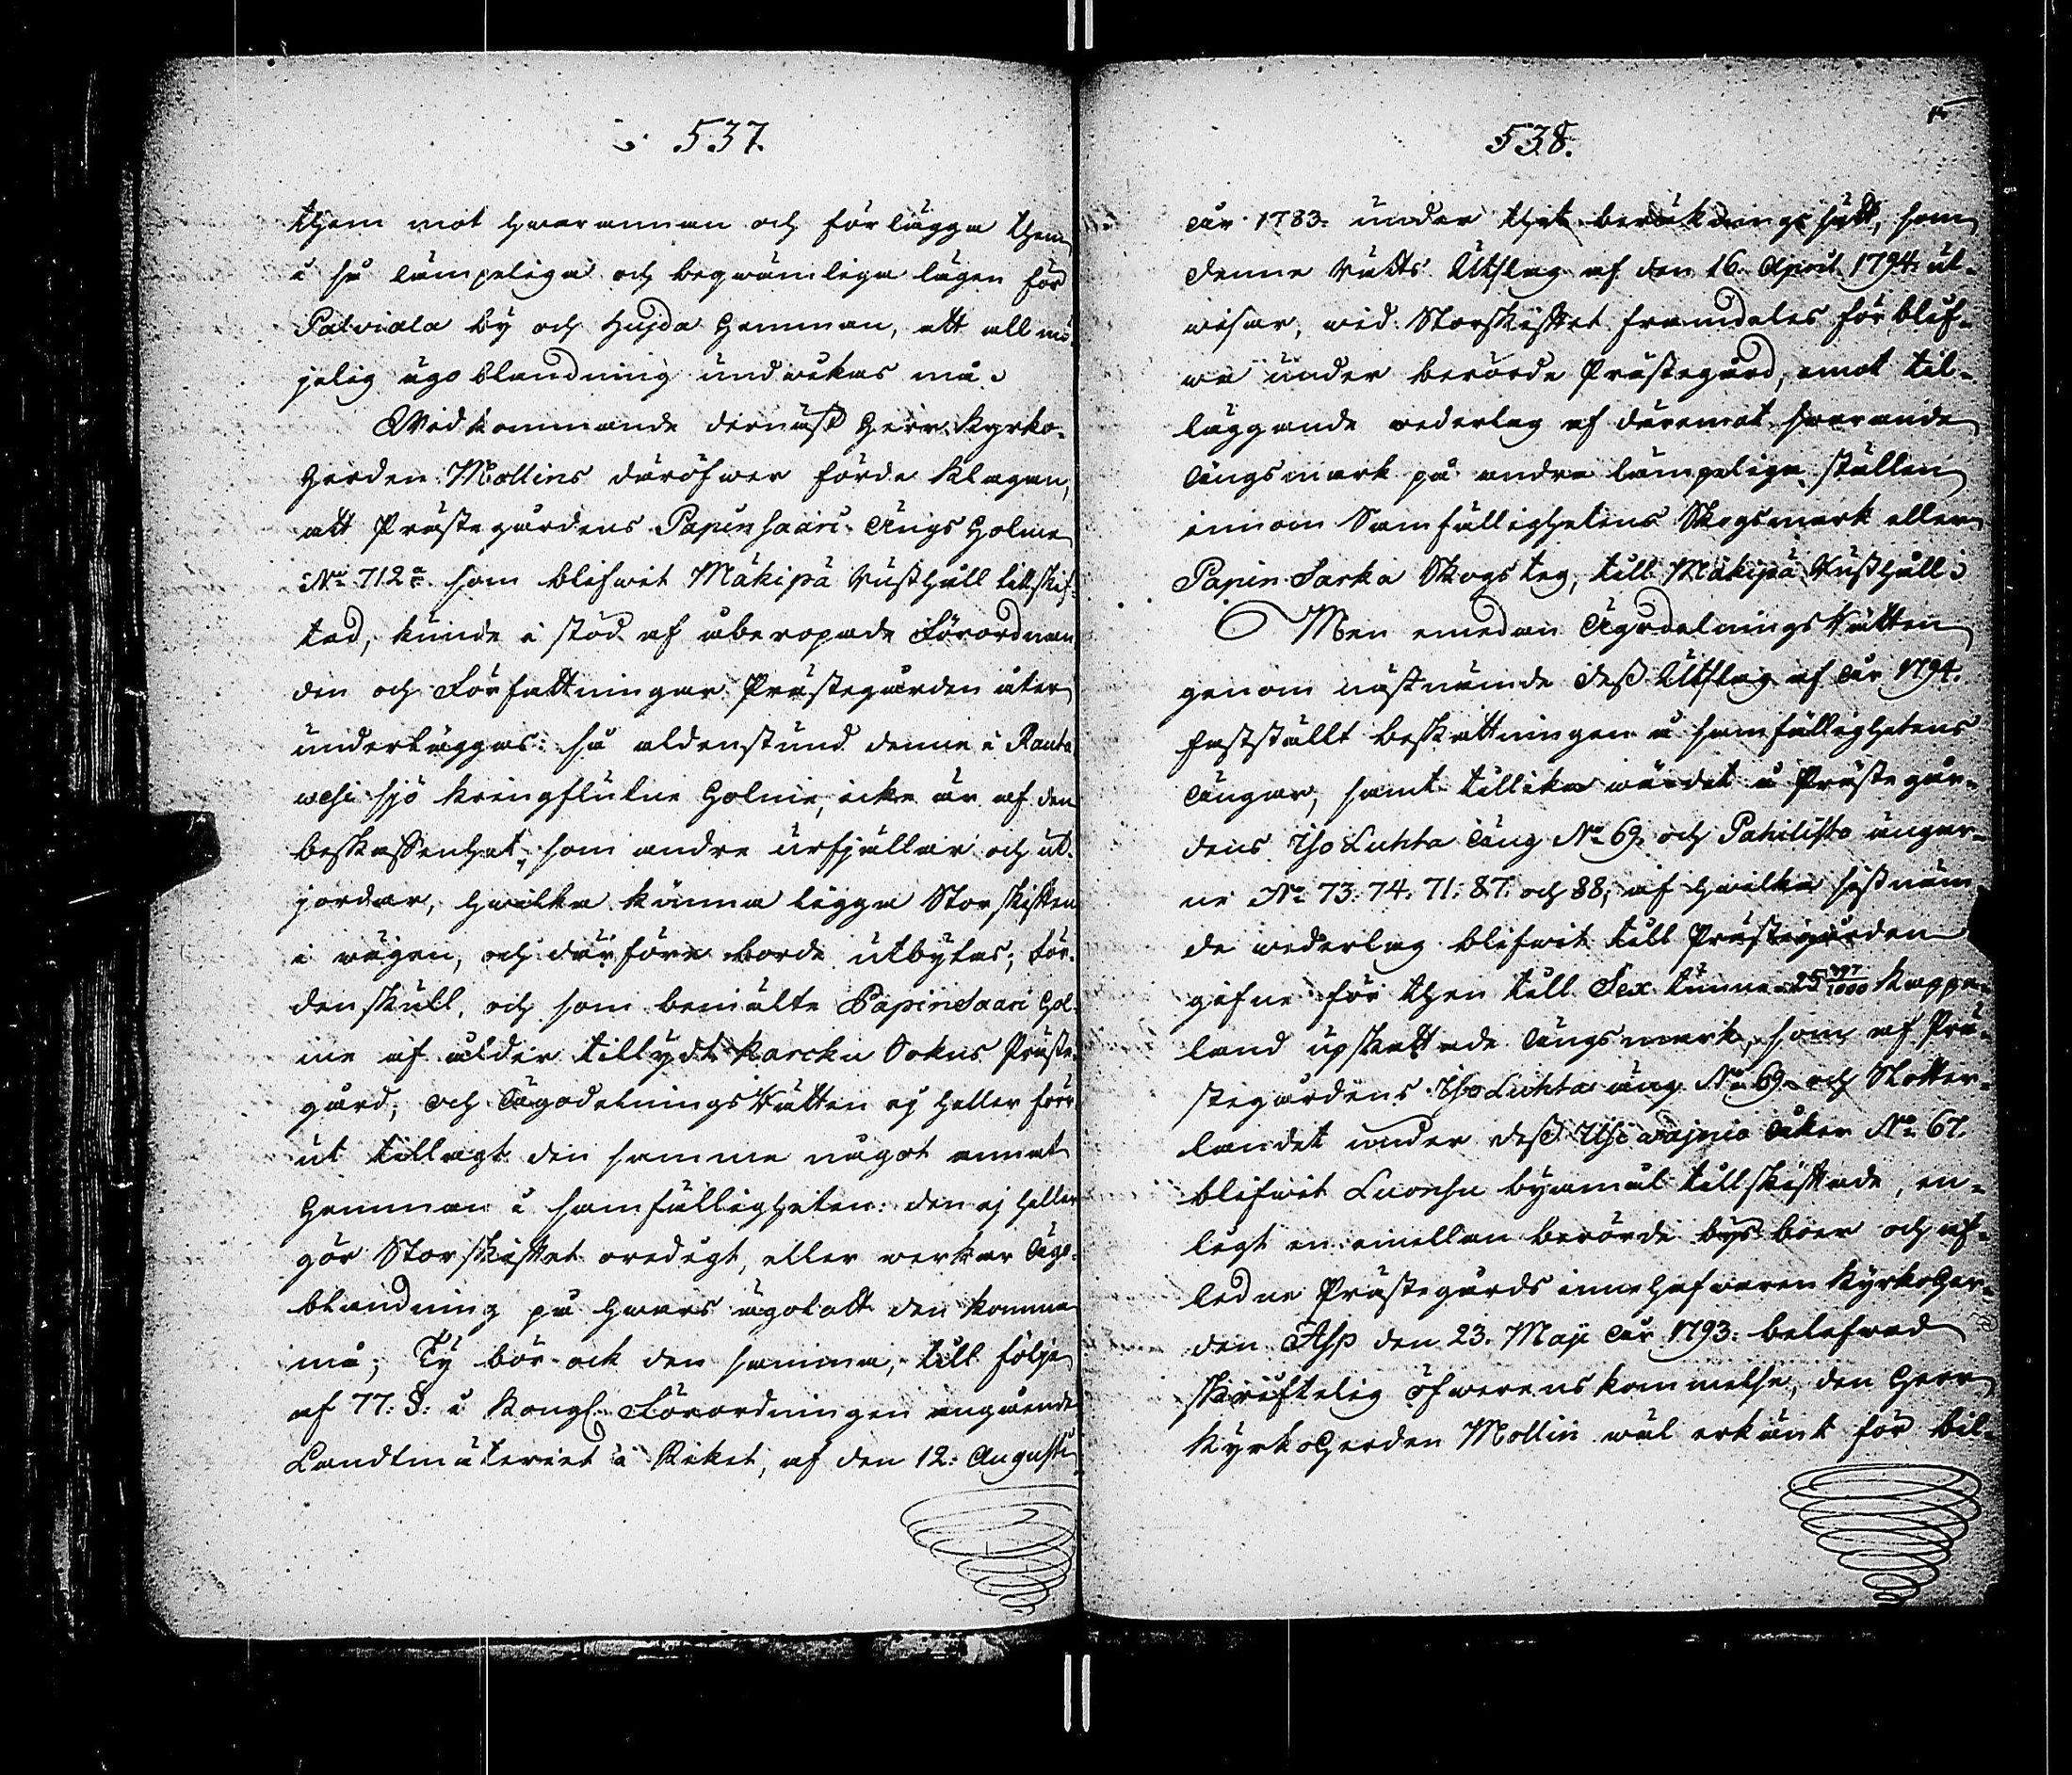 537.
them mot hwarannan och förlägga them
i så lämpeliga och beqwämliga lägen för
Palviala by och Hujda Hemman, att all mö-
jelig ägoblandning undwikas må.
Widkommande dernäst Herr Kyrko-
herden Mollins däröfwer förde klagan,
att Prästegårdens Papinsaari Ängs Holme
N:o 712 a. som blifwit Mäkipä Rusthåll tillskif-
tad, kunde i stöd af åberopade Förordnan
den och Författningar Prästegården åter
underläggas: så aldenstund denne i Rauta
wesi sjö kringflutne Holme, icke är af den
beskaffenhet, som andre urfjällar och ut-
jordar, hwilka kunna ligga Storskiften
i wägen, och därföre borde utbytas; för-
denskull, och som bemälte Papinsaari Hol-
me af ålder tillydt Karcku Sokns Präste-
gård, och Ägodelnings Rätten ej heller förr
ut tillagt den samme något annat
Hemman i samfälligheten: den ej heller
gör Storskiftet oredigt, eller werkar Ägo-
blandning på hwars ägolott den komma
må; Ty bör ock den samma, till följe
af 77. §. i Kongl. Förordningen angående
Landtmäteriet i Riket, af den 12. Augusti
538.
år 1783. under thet beräknings sätt, som
denne Rätts Utslag af den 16. April 1794. ut-
wisar, wid Storskiftet framdeles förblif-
wa under berörde Prästegård, emot til-
läggande wederlag af däremot swarande
Ängsmark på andra lämpeliga ställen
innom Samfällighetens Skogsmark eller
Papin Sarka Skogs teg, till Mäkipä Rusthåll.
Men emedan Ägodelnings Rätten
genom nästnämde dess Utslag af år 1794.
fastställt beskattningen å samfällighetens
Ängar, samt tillika wärdet å Prästegår-
dens Iso Luhta Äng N:o 69. och Pahilisto ängar-
ne N:o 73. 74. 71. 87. och 88, af hwilka sistnäm-
de wederlag blifwit till Prästegården
gifne för then till Sex tunne 25 397/1000 Kappe-
land upskattade Ängsmark, som af Prä-
stegårdens Iso Luhta äng N:o 69. och Slotter-
landet under dess Usi wajnio Åker N:o 67.
blifwit Luonsu byamål tillskiftade, en-
ligt en emellan berörde bys boer och af-
ledne Prästegårds innehafwaren Kyrkoher-
den Asp den 23. Maji år 1793. belefwad
skriftelig öfwerenskommelse, den Herr
Kyrkoherden Mollin wäl erkänt för bil-